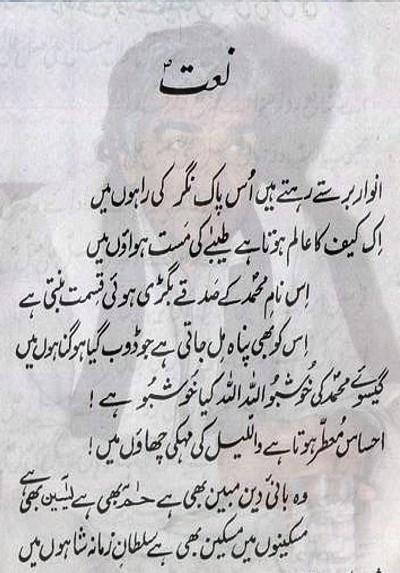 نعتؐ
انوار برستے رہتے ہیں اُس پاک نگر کی راہوں میں
اِک کیف کا عالم ہوتا ہے طیبٰے کی مَست ہواؤں میں
اِس نامِ محمدؐ کے صَدقے بگڑی ہوئی قسمت بنتی ہے
اِس کو بھی پناہ مِل جاتی ہے جو ڈوب گیا ہو گناہوں میں
گیسوئے محمدؐ کی خُوشبُو اللہ اللہ کیا خُوشبُو ہے !
احساس مُعطّر ہوتا ہے والّلیل کی مہکی چھاؤں میں !
وہ بانیٔ دین مبین بھی ہے حٰمٓ بھی ہے یٰسٓین بھی ہے
مسکینوں میں مسکین بھی ہے سلطانِ زمانہ شاہوں میں